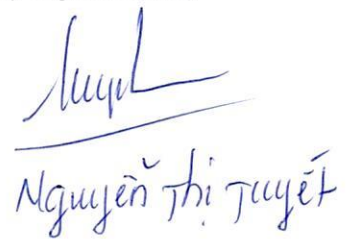 Nguyễn Thị Tuyết